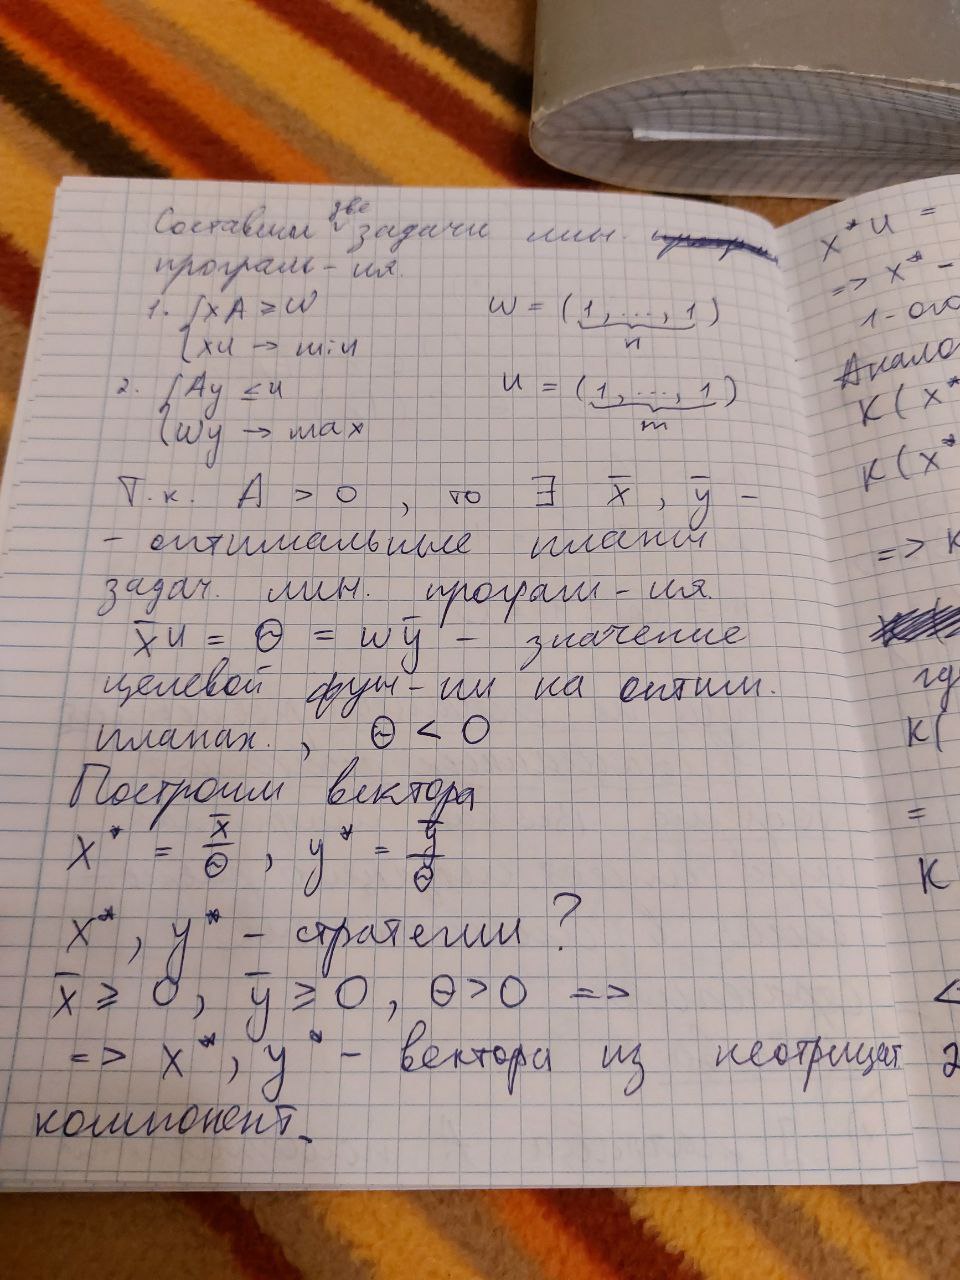 Составим две задачи лин.
програм-ия.
1. { xA ≥ w    w = (1, ..., 1)
xu → min    n
2. { Ay ≤ u    u = (1, ..., 1)
wy → max    m
Т.к. A > 0, то ∃ x̅, y̅ -
- оптимальные планы
задач. лин. програм-ия.
x̅u = Θ = wy̅ - значение
целевой фун-ии на оптим.
планах., Θ < 0
Построим вектора
x* = x̅/Θ, y* = y̅/Θ
x*, y* - стратегии?
x̅ ≥ 0, y̅ ≥ 0, Θ > 0 =>
=> x*, y* - вектора из неотрицат.
компонент.
x*u =
=> x* -
1-ого
K(x*
K(x*
=> K
K(
=
K